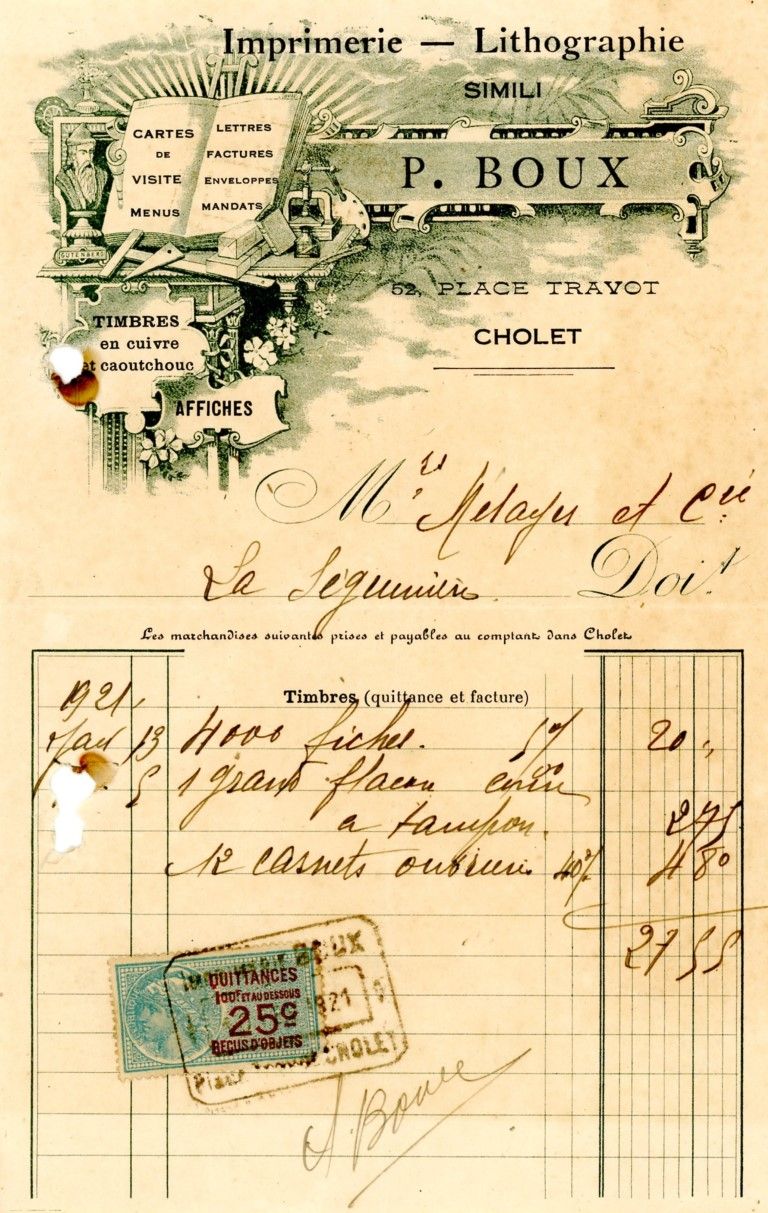 Imprimerie — Lithographie
SIMILI
P. BOUX
52, PLACE TRAVOT
CHOLET
CARTES
DE
VISITE
MENUS
LETTRES
FACTURES
ENVELOPPES
MANDATS
GUTENBERG
TIMBRES
en cuivre
et caoutchouc
AFFICHES
Mrs Métayer et Cie
La Séguinière Doit
Les marchandises suivantes prises et payables au comptant dans Cholet
1921
Timbres (quittance et facture)
13 4000 fiches. 20 "
5 1 grand flacon
a tampon. 2 75
12 carnets 4 80
27 55
BOUX
QUITTANCES
100F ET AU DESSOUS
25c
REÇUS D'OBJETS
Place CHOLET